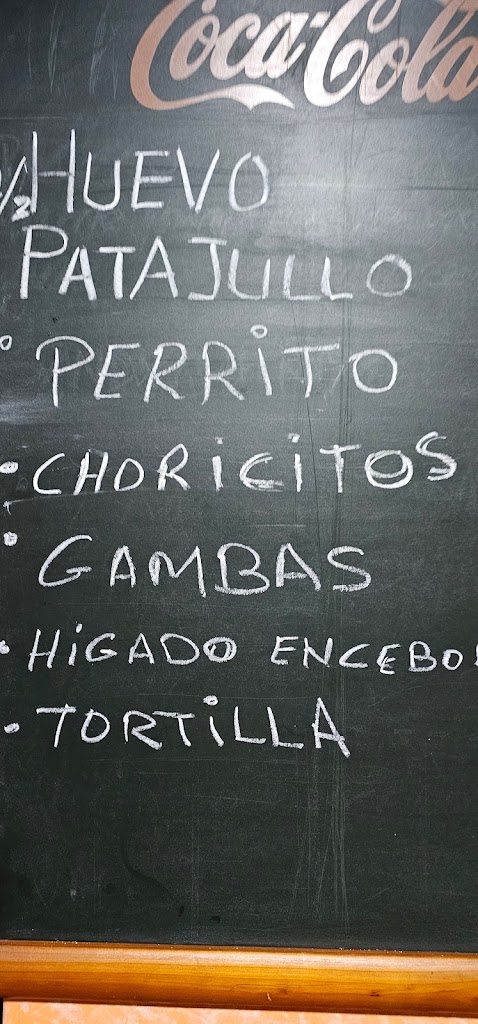 Coca-Cola
1/2 HUEVO
PATAJULLO
PERRiTO
CHORiCiTOS
GAMBAS
HiGADO ENCEBO
TORTiLLA